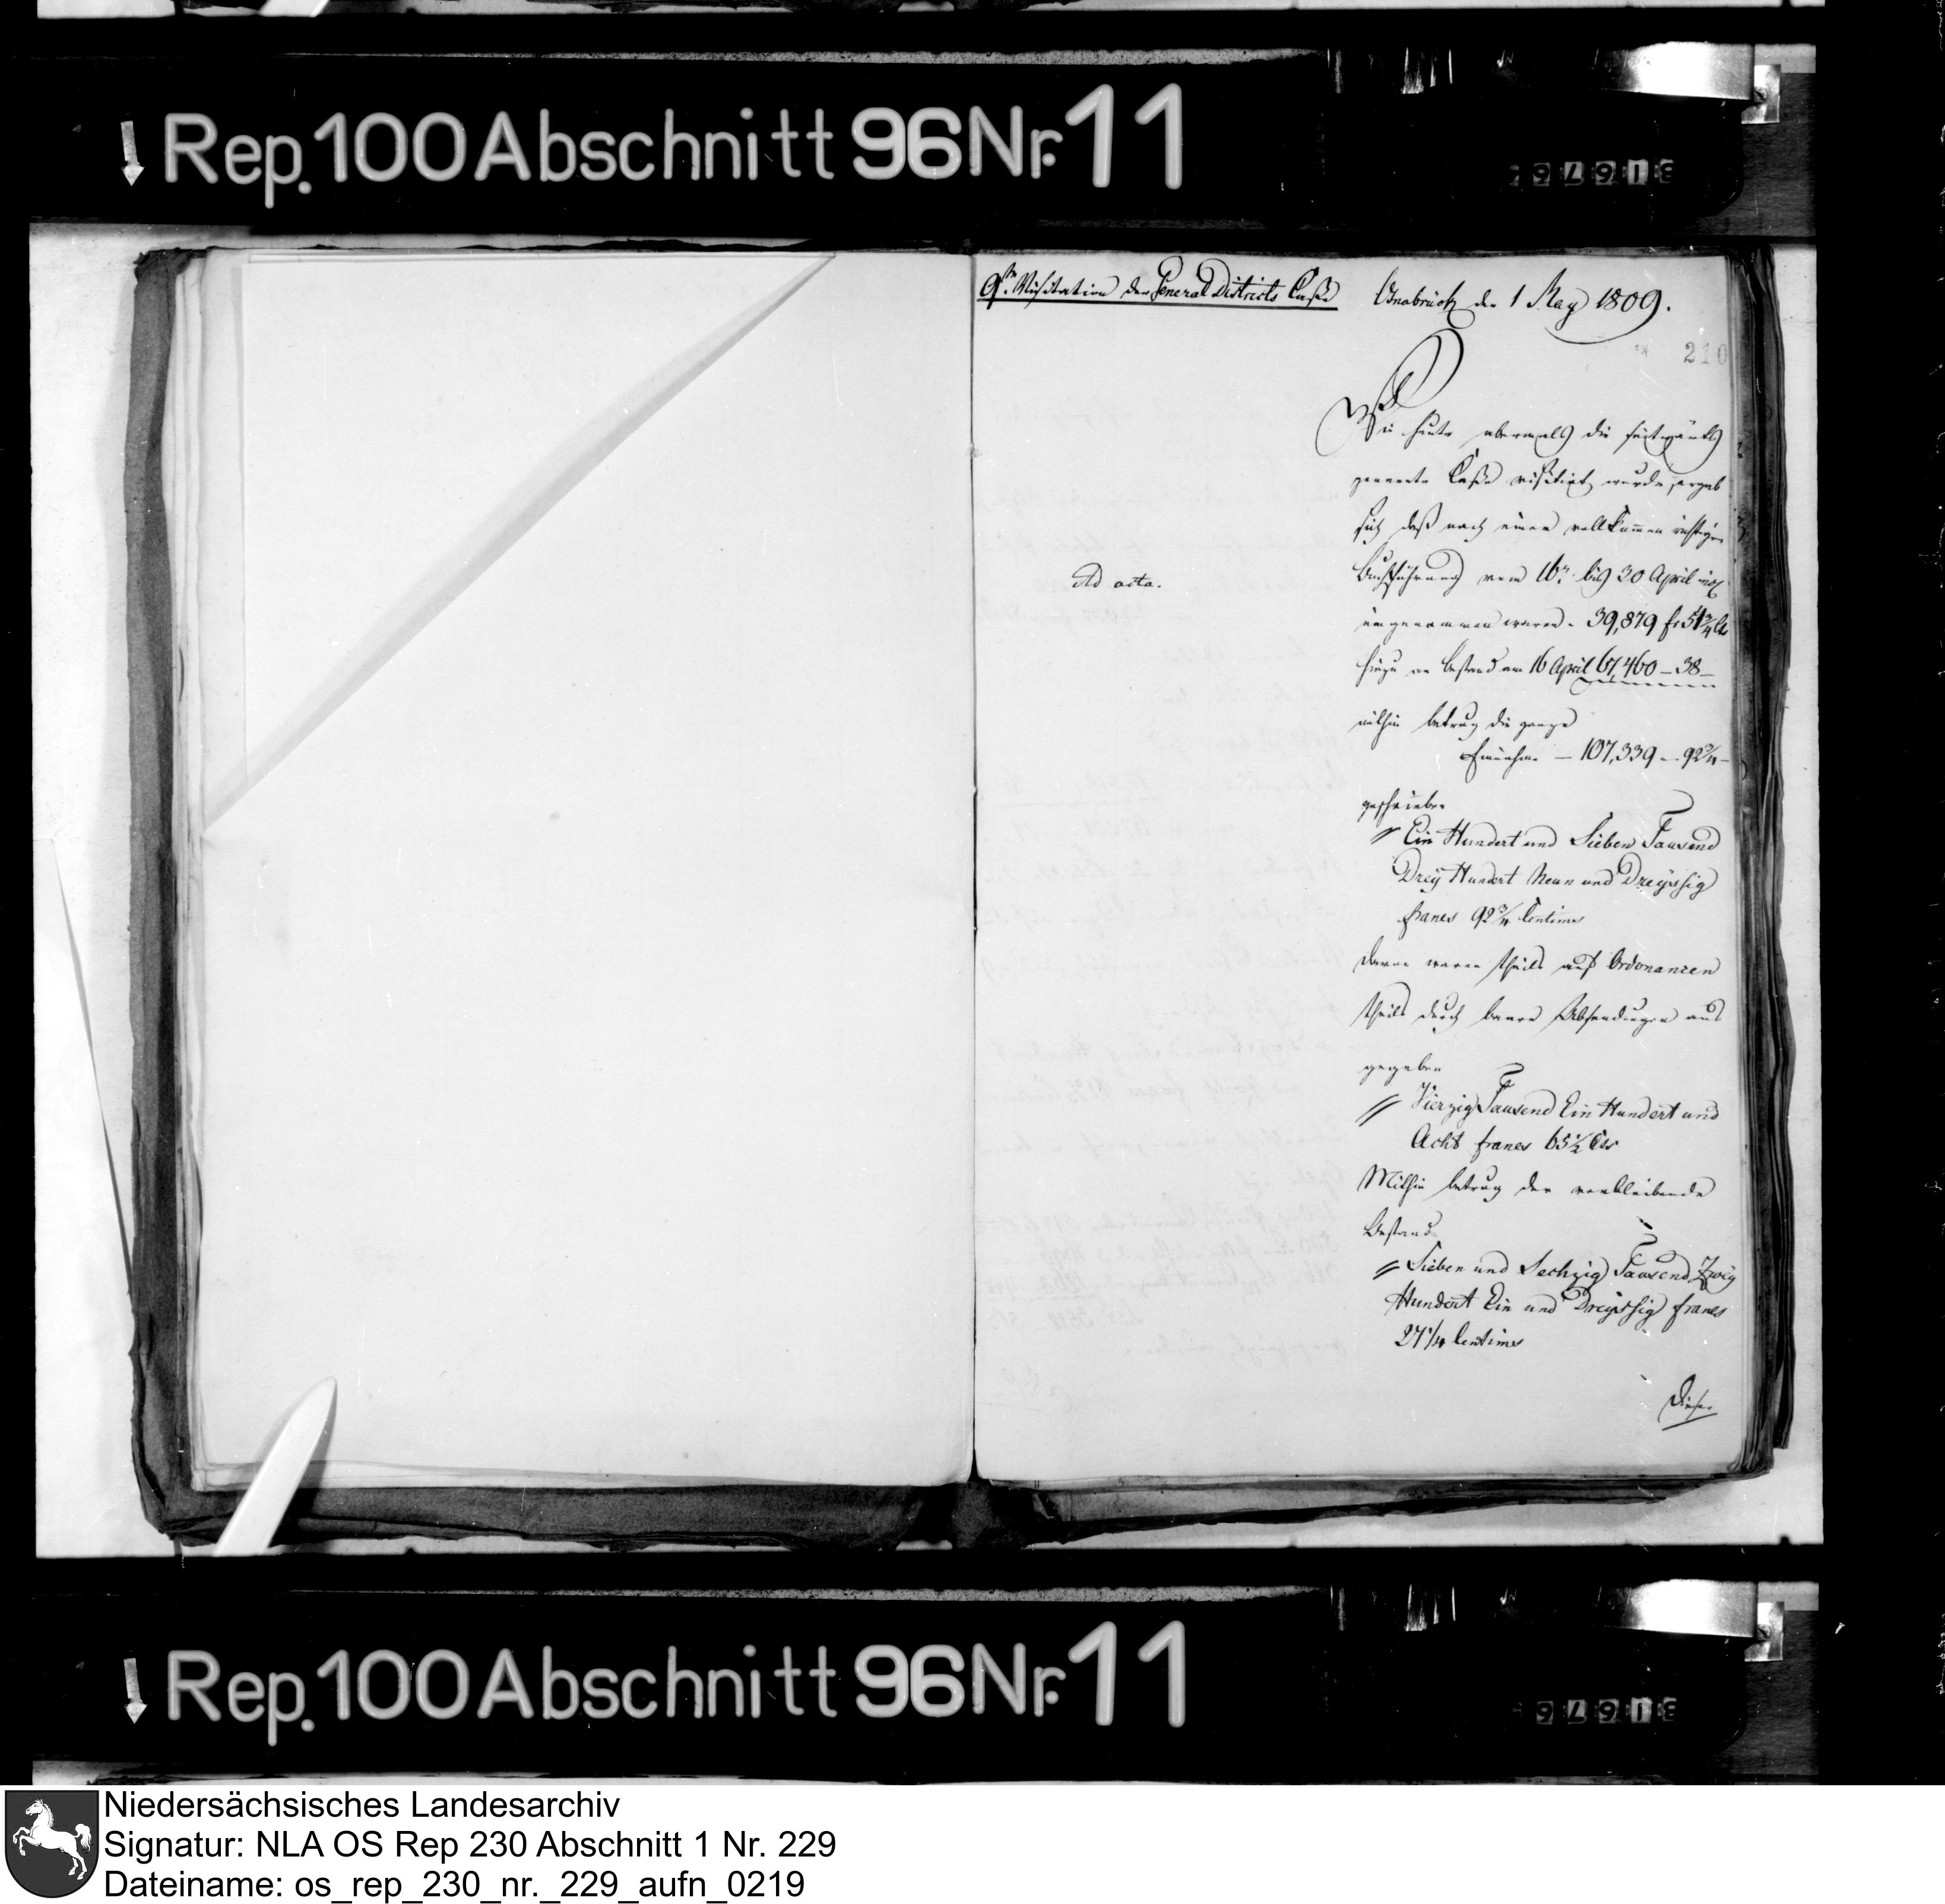 Rep. 100 Abschnitt 96 Nr. 11
9te Visitation der General Districts Casse
Osnabrück den 1 May 1809.
210
Als heute abermals die seitwärts
genannte Casse visitirt wurde, ergab
sich daß nach einer vollkommen richtigen
Buchführung vom 16n bis 30 April
eingenommen waren - 39,879 fr 54 3/4 Cts
hiezu an Bestand am 16 April 67,460 - 38 -
mithin betrug die ganze
Einnahme - 107,339 - 92 3/4 -
geschrieben
Ein Hundert und Sieben Tausend
Drey Hundert Neun und Dreyssig
francs 92 3/4 Centimes
Davon waren theils auf Ordonanzen
theils durch baare Absendungen aus
gegeben
Vierzig Tausend Ein Hundert und
Acht francs 65 1/2 Cts
Mithin betrug der verbleibende
Bestand
Sieben und Sechzig Tausend Zwey
Hundert Ein und Dreyssig francs
27 1/4 Centimes
Dieser
Ad acta.
Rep. 100 Abschnitt 96 Nr. 11
Niedersächsisches Landesarchiv
Signatur: NLA OS Rep 230 Abschnitt 1 Nr. 229
Dateiname: os_rep_230_nr._229_aufn_0219